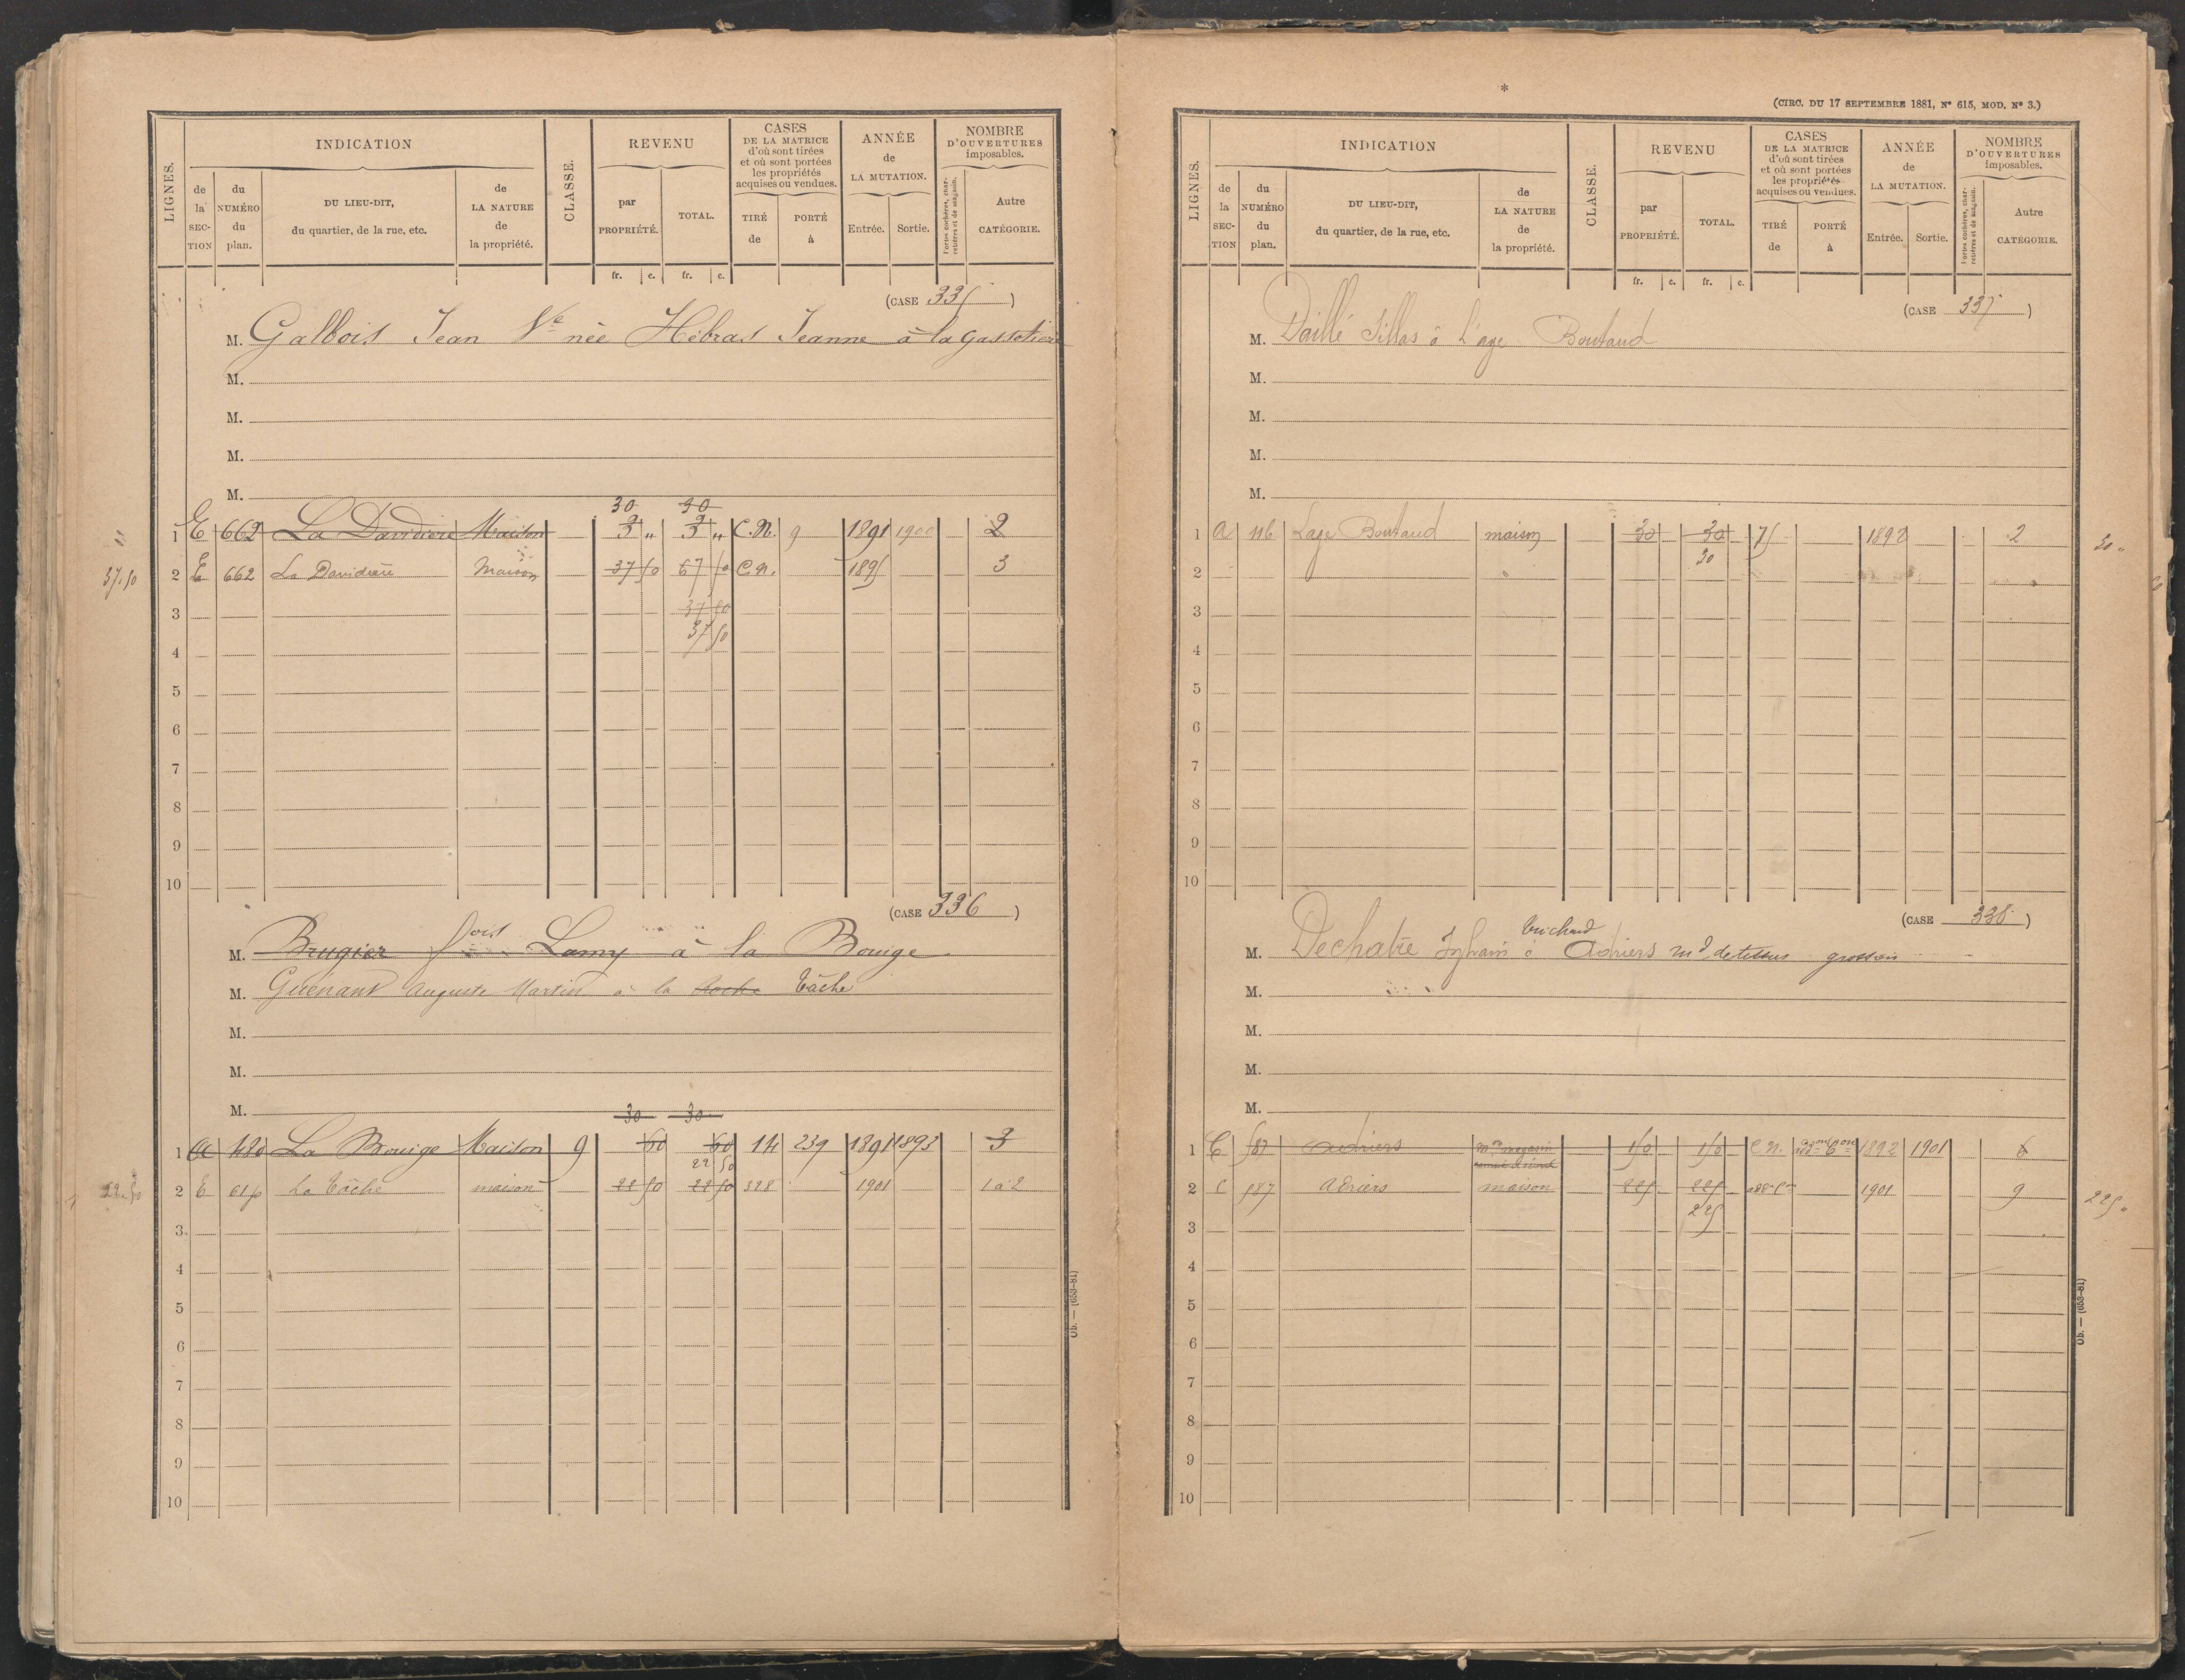 LIGNES.
INDICATION
de la SECTION
du NUMÉRO du plan.
DU LIEU-DIT, du quartier, de la rue, etc.
de LA NATURE de la propriété.
CLASSE.
REVENU
par PROPRIÉTÉ.
TOTAL.
CASES DE LA MATRICE d'où sont tirées et où sont portées les propriétés acquises ou vendues.
TIRÉ de
PORTÉ à
ANNÉE de LA MUTATION.
Entrée.
Sortie.
NOMBRE D'OUVERTURES imposables.
Portes cochères, charretières et de magasin.
Autre CATÉGORIE.
fr. c. fr. c.
(CASE 335)
M. Galbois Jean Ve née Hébras Jeanne à la Gassotière
M.
M.
M.
M.
30 30
1 E 662 La Davidière Maison 3 " 3 " C.N. 9 1891 1900 2
37.50 2 E 662 La Davidière Maison 37 50 67 50 C.N. 1895 3
3 37 50
37 50
4
5
6
7
8
9
10
(CASE 336)
M. Brugier fois Lamy à la Bouige
M. Guénant Auguste Martin à la Roche Tâche
M.
M.
M.
30 30
1 A 480 La Bouige Maison 9 60 60 14 239 1891 1893 3
22 50
22.50 2 E 61p La Tâche maison 22 50 22 50 328 1901 1 à 2
3
4
5
6
7
8
9
10
Ob. — (653-81)
*
(CIRC. DU 17 SEPTEMBRE 1881, N° 615, MOD. N° 3.)
LIGNES.
INDICATION
de la SECTION
du NUMÉRO du plan.
DU LIEU-DIT, du quartier, de la rue, etc.
de LA NATURE de la propriété.
CLASSE.
REVENU
par PROPRIÉTÉ.
TOTAL.
CASES DE LA MATRICE d'où sont tirées et où sont portées les propriétés acquises ou vendues.
TIRÉ de
PORTÉ à
ANNÉE de LA MUTATION.
Entrée.
Sortie.
NOMBRE D'OUVERTURES imposables.
Portes cochères, charretières et de magasin.
Autre CATÉGORIE.
fr. c. fr. c.
(CASE 337)
M. Daillé Sillas à L'age Boutaud
M.
M.
M.
M.
1 A 116 Lage Boutaud maison 30 30 75 1892 2 30 "
30
2
3
4
5
6
7
8
9
10
(CASE 338)
M. Dechatre à Adriers md de tissus
M.
M.
M.
M.
1 C 587 Adriers magasin 150 150 C.N. 1892 1901 6
2 C 587 Adriers maison 225 225 1901 9 225 "
225
3
4
5
6
7
8
9
10
Ob. — (653-81)